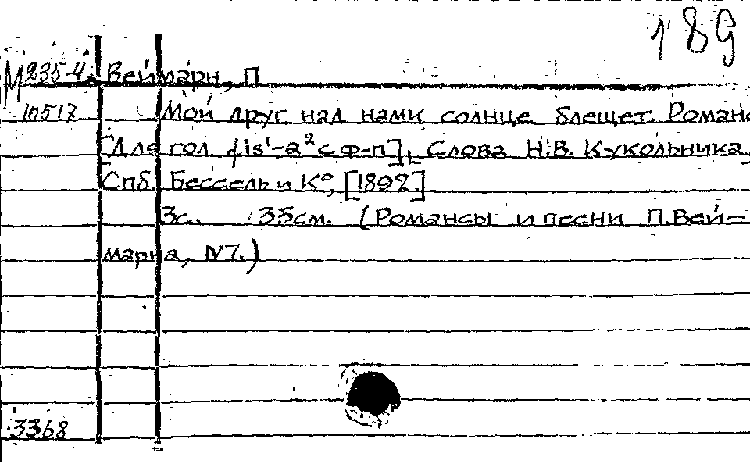 189
М 235-4 Веймарн, П
in517 Мой друг над нами солнце блещет. Романс
[Для гол. fis¹-a² с ф-п]. Слова Н.В. Кукольника.
Спб. Бессель и Кº, [1892]
3с. 33см. (Романсы и песни П.Вей-
марна, №7.)
3368